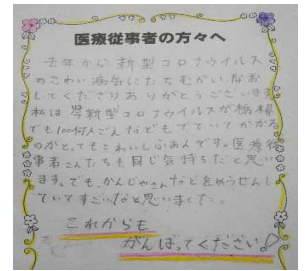 医療従事者の方々へ
去年から新型コロナウイルス
のこわい病気にたちむかいなお
してくださりありがとうございます。
私は、新型コロナウイルスが
でも100何人ごえなどもでていてかかる
のがとってもこわいしふあんです。医療従
事者さんたちも同じ気持ちだと思い
ます。でも、かんじゃさんなどをゆうせんし
ていてすごいなと思いました。
これからも
がんばってください!